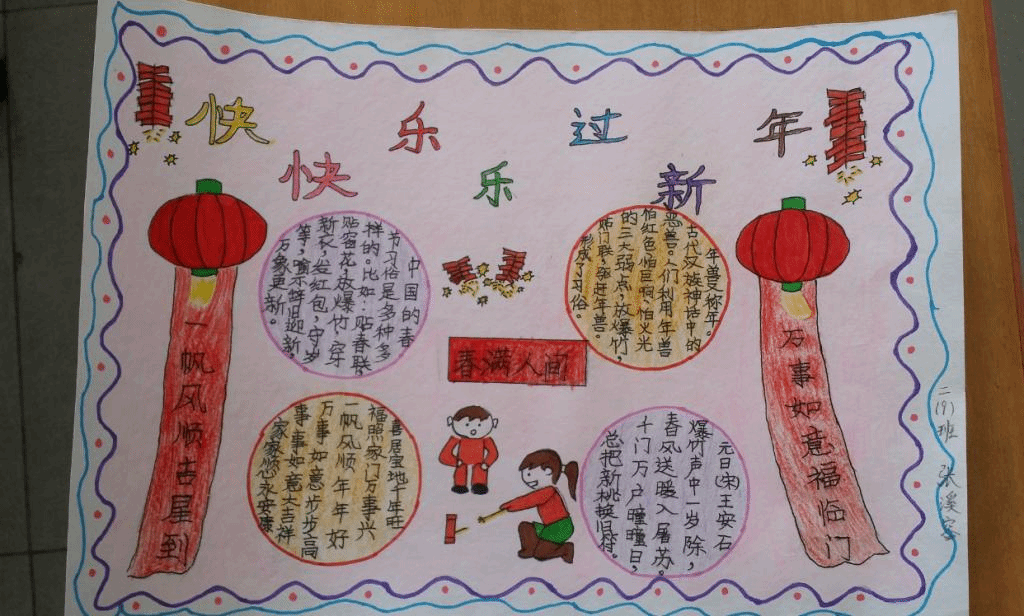 快 乐 过 年
快 乐 新
中国的春
节习俗是多种多
样的。比如:贴春联
贴窗花,放爆竹,穿
新衣,发红包,守岁
等,喻示辞旧迎新。
万象更新。
年兽又称年。
古代汉族神话中的
恶兽。人们利用年兽
怕红色,怕巨响,怕火光
的三大弱点,放爆竹,
贴门联,驱赶年兽。
形成了习俗。
一帆风顺吉星到
春满人间
万事如意福临门
喜居宝地千年旺
福照家门万事兴
一帆风顺年年好
万事如意步步高
事事如意大吉祥
家家顺永安康
元日(宋)王安石
爆竹声中一岁除,
春风送暖入屠苏。
千门万户曈曈日,
总把新桃换旧符。
二(9)班 张溪容